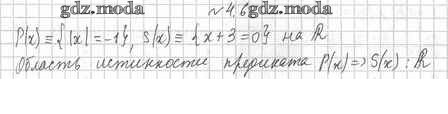 gdz.moda № 4.6 gdz.moda
P(x) ≡ {|x| = -1}, S(x) ≡ {x + 3 = 0} на ℝ
Область истинности предиката P(x) => S(x) : ℝ